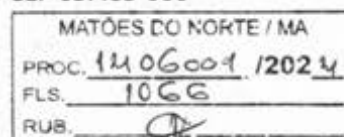 MATÕES DO NORTE / MA
PROC. 1406001 /2024
FLS. 1066
RUB.